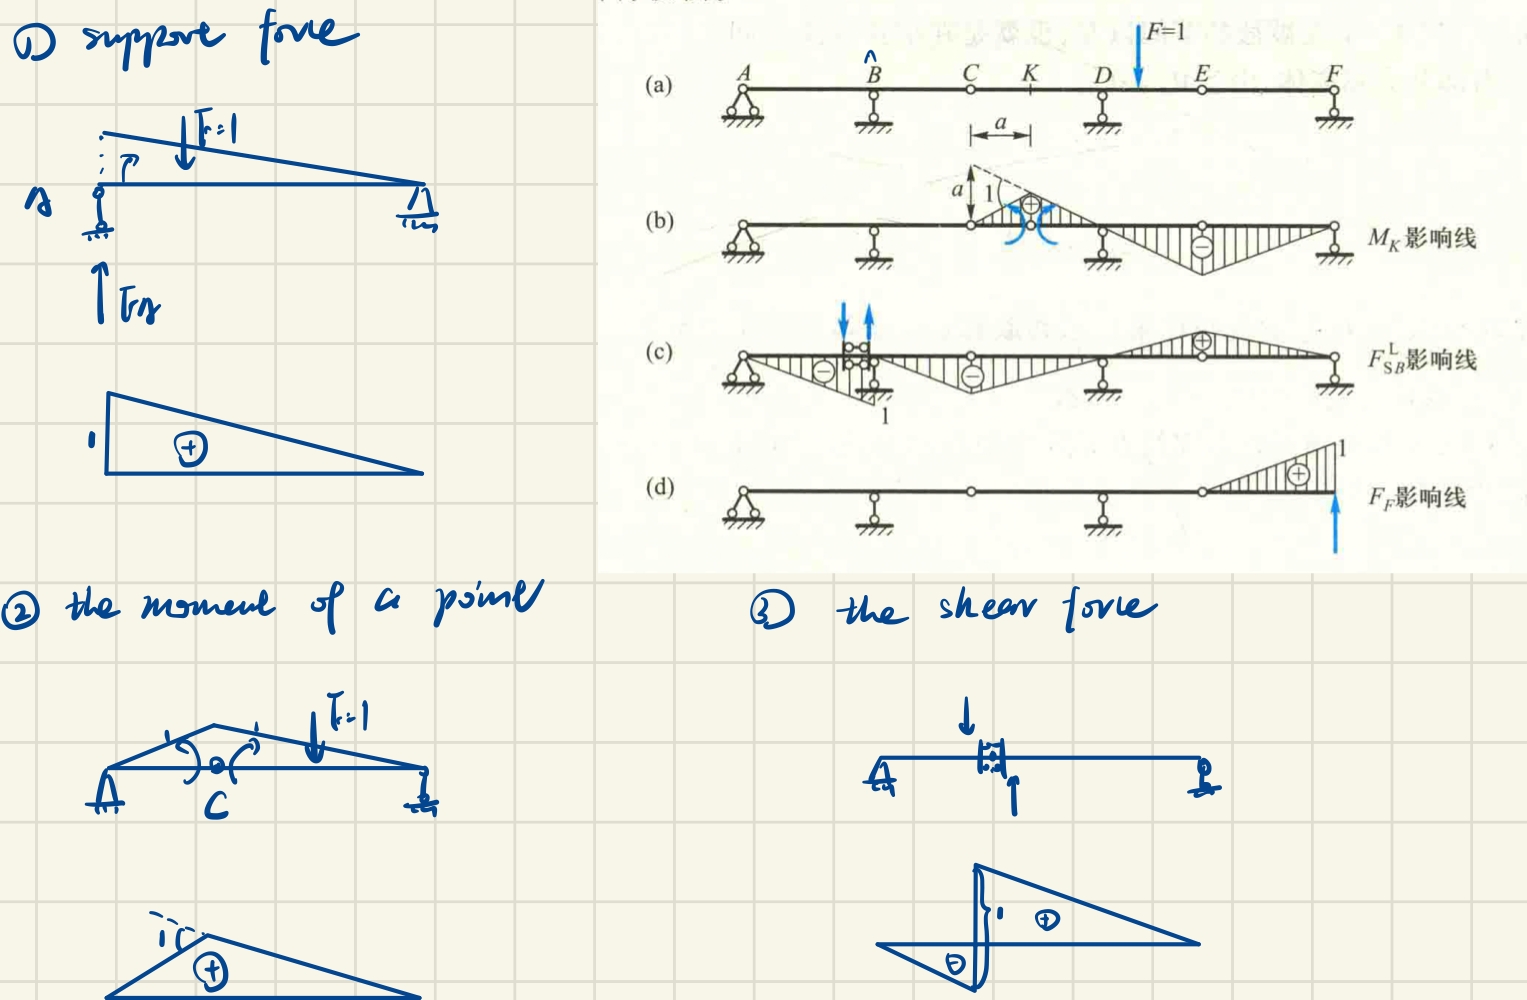 ① support force
F=1
A
FA
1
+
(a)
A B C K D F=1 E F
a
(b)
a 1 + −
M_K 影响线
(c)
− − +
1
F^L_SB 影响线
(d)
+ 1
F_F 影响线
② the moment of a point
F=1
C
1
+
③ the shear force
1
+
−